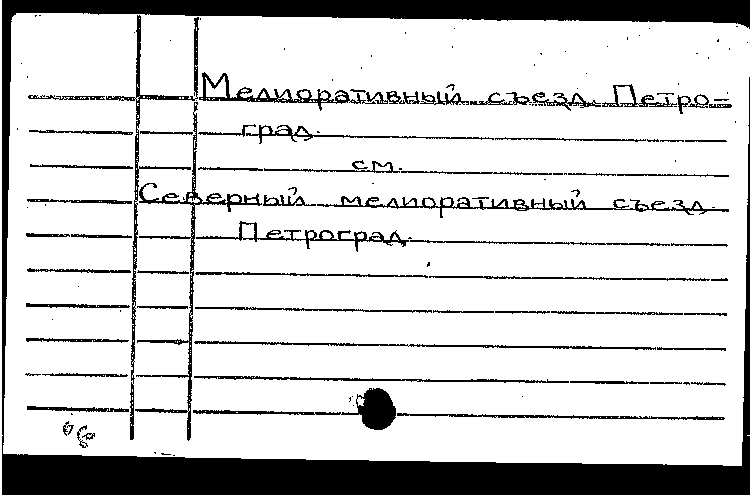 Мелиоративный съезд. Петро-
град.
см.
Северный мелиоративный съезд.
Петроград.